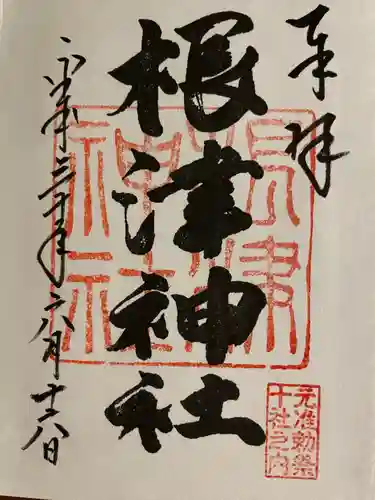 奉拝
根津神社
平成三十年六月十六日
根津
神社
元准勅祭
十社之内